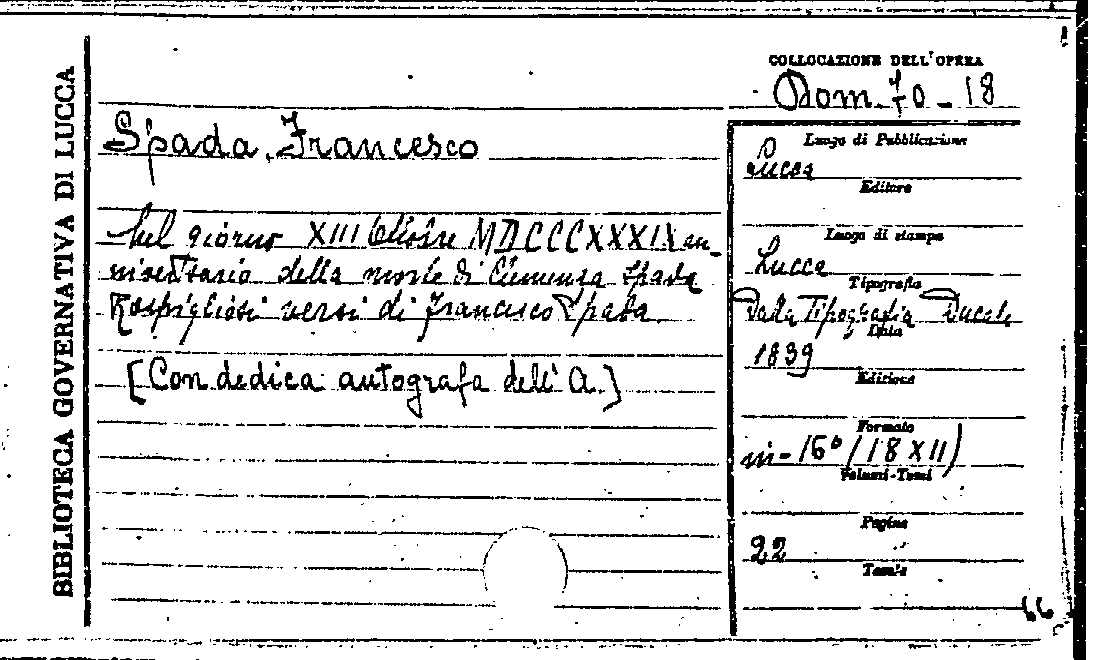 BIBLIOTECA GOVERNATIVA DI LUCCA
COLLOCAZIONE DELL'OPERA
Dom. 70 - 18
Spada, Francesco
Nel giorno XIII Ottobre MDCCCXXXIX an-
niversario della morte di Clemenza Spada
Rospigliosi versi di Francesco Spada
[Con dedica autografa dell'A.]
Luogo di Pubblicazione
Lucca
Editore
Luogo di stampa
Lucca
Tipografia
Dalla Tipografia Ducale
Data
1839
Edizione
Formato
in-16° (18 X 11)
Volumi-Tomi
Pagine
22
66